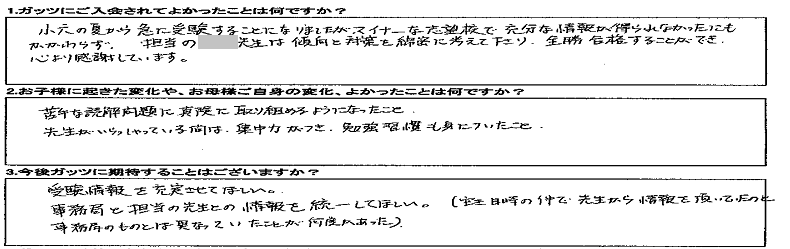 1.ガッツにご入会されてよかったことは何ですか?
小六の夏から急に受験することになりましたがマイナーな志望校で充分な情報が得られなかったにも
かかわらず、担当の 先生は傾向と対策を綿密に考えて下さり、全勝合格することができ、
心より感謝しています。
2.お子様に起きた変化や、お母様ご自身の変化、よかったことは何ですか?
苦手な読解問題に真険に取り組めるようになったこと.
先生がいらっしゃっている間は、集中力がつき、勉強習慣も身についたこと.
3.今後ガッツに期待することはございますか?
受験情報を充実させてほしい。
事務局と担当の先生との情報を統一してほしい。( 日時の件で先生から情報を頂いていたのと
事務局のものとは異なっていたことが何度かあった)